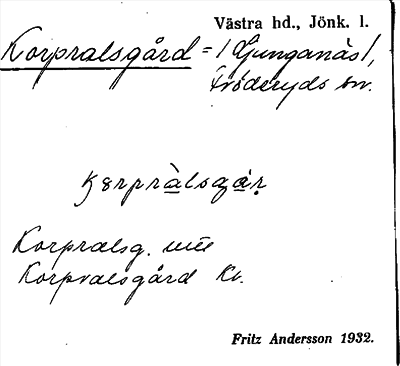 Västra hd., Jönk. l.
Korpralsgård = / Ljunganäs /,
Fröderyds sn.
kɤrpràlsgár
Korpralsg.
Korpralsgård Kv.
Fritz Andersson 1932.